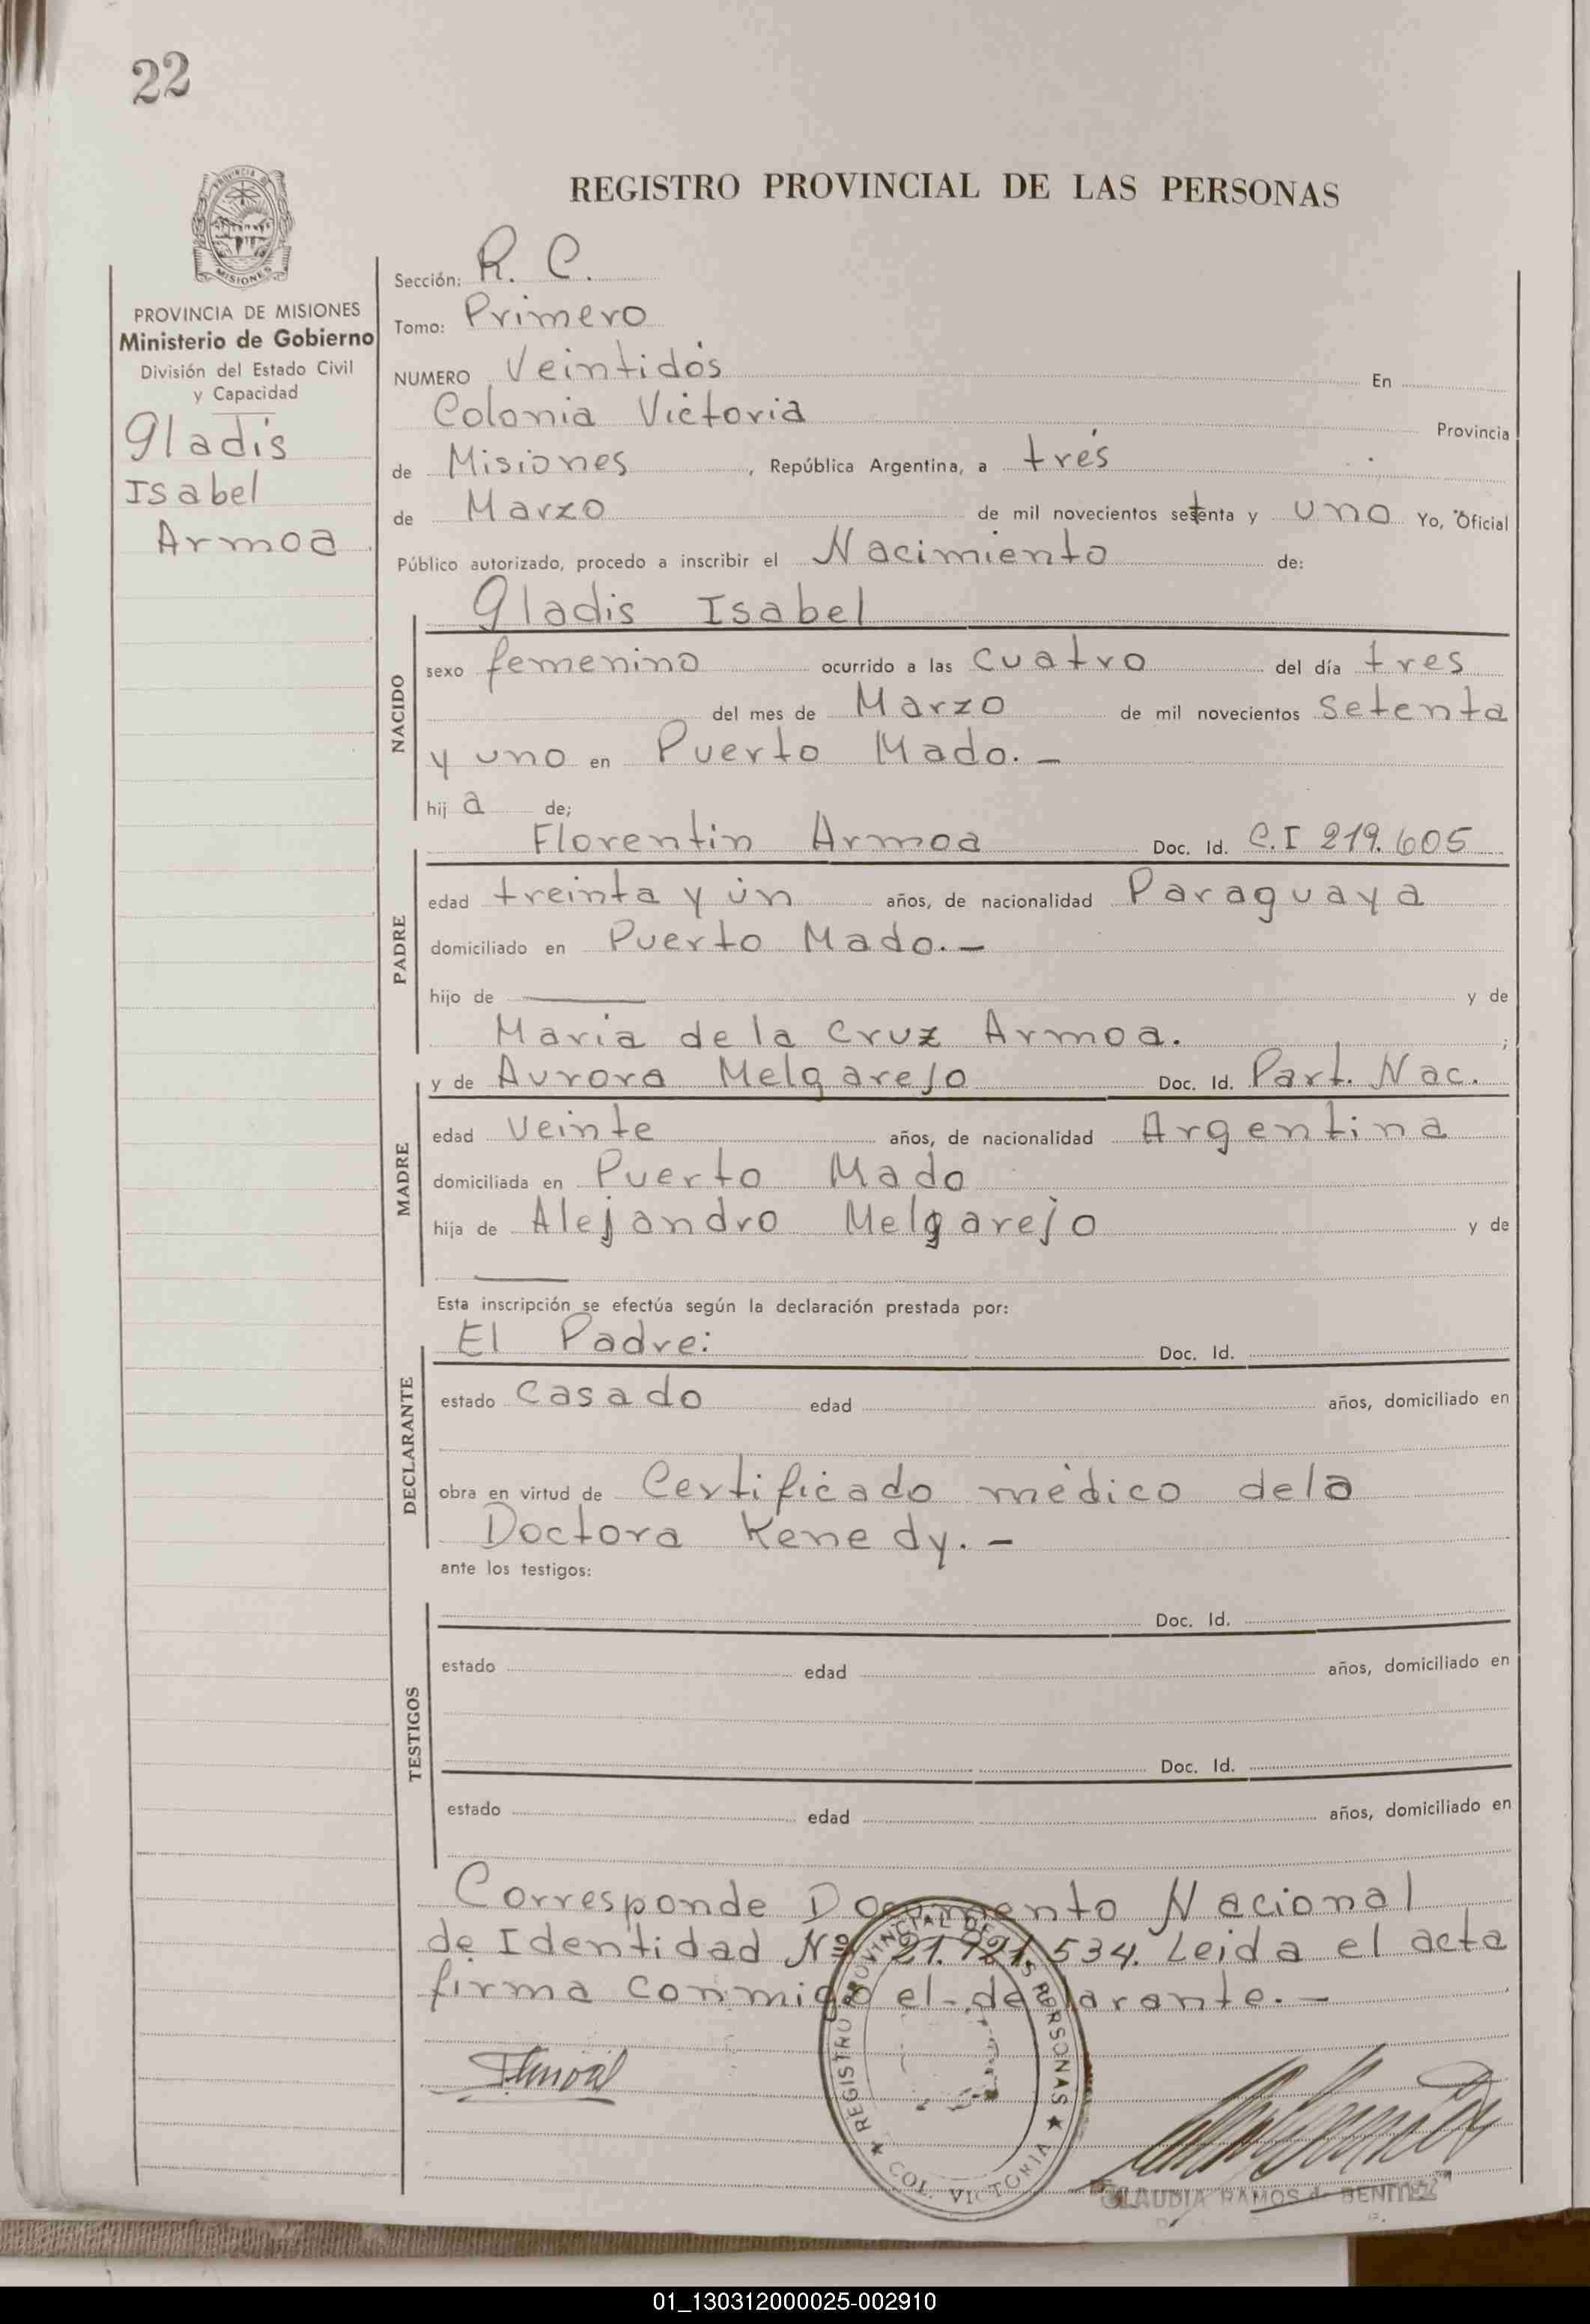 22
PROVINCIA DE MISIONES
REGISTRO PROVINCIAL DE LAS PERSONAS
PROVINCIA DE MISIONES
Ministerio de Gobierno
División del Estado Civil
y Capacidad
Gladis
Isabel
Armoa
Sección: R. C.
Tomo: Primero
NUMERO Veintidós En
Colonia Victoria Provincia
de Misiones, República Argentina, a trés
de Marzo de mil novecientos setenta y uno Yo, Oficial
Público autorizado, procedo a inscribir el Nacimiento de:
Gladis Isabel
NACIDO
sexo femenino ocurrido a las cuatro del día tres
del mes de Marzo de mil novecientos setenta
y uno en Puerto Mado. -
hij a de;
Florentin Armoa Doc. Id. C.I 219.605
PADRE
edad treinta y ún años, de nacionalidad Paraguaya
domiciliado en Puerto Mado. -
hijo de y de
Maria de la Cruz Armoa. ;
y de Aurora Melgarejo Doc. Id. Part. Nac.
MADRE
edad veinte años, de nacionalidad Argentina
domiciliada en Puerto Mado
hija de Alejandro Melgarejo y de
Esta inscripción se efectúa según la declaración prestada por:
El Padre: Doc. Id.
DECLARANTE
estado Casado edad años, domiciliado en
obra en virtud de Certificado médico dela
Doctora Kenedy. -
ante los testigos:
Doc. Id.
TESTIGOS
estado edad años, domiciliado en
Doc. Id.
estado edad años, domiciliado en
Corresponde Documento Nacional
de Identidad Nº 21.721.534. Leida el acta
firma conmigo el declarante. -
REGISTRO PROVINCIAL DE LAS PERSONAS
COL. VICTORIA
CLAUDIA RAMOS de BENITEZ
01_130312000025-002910